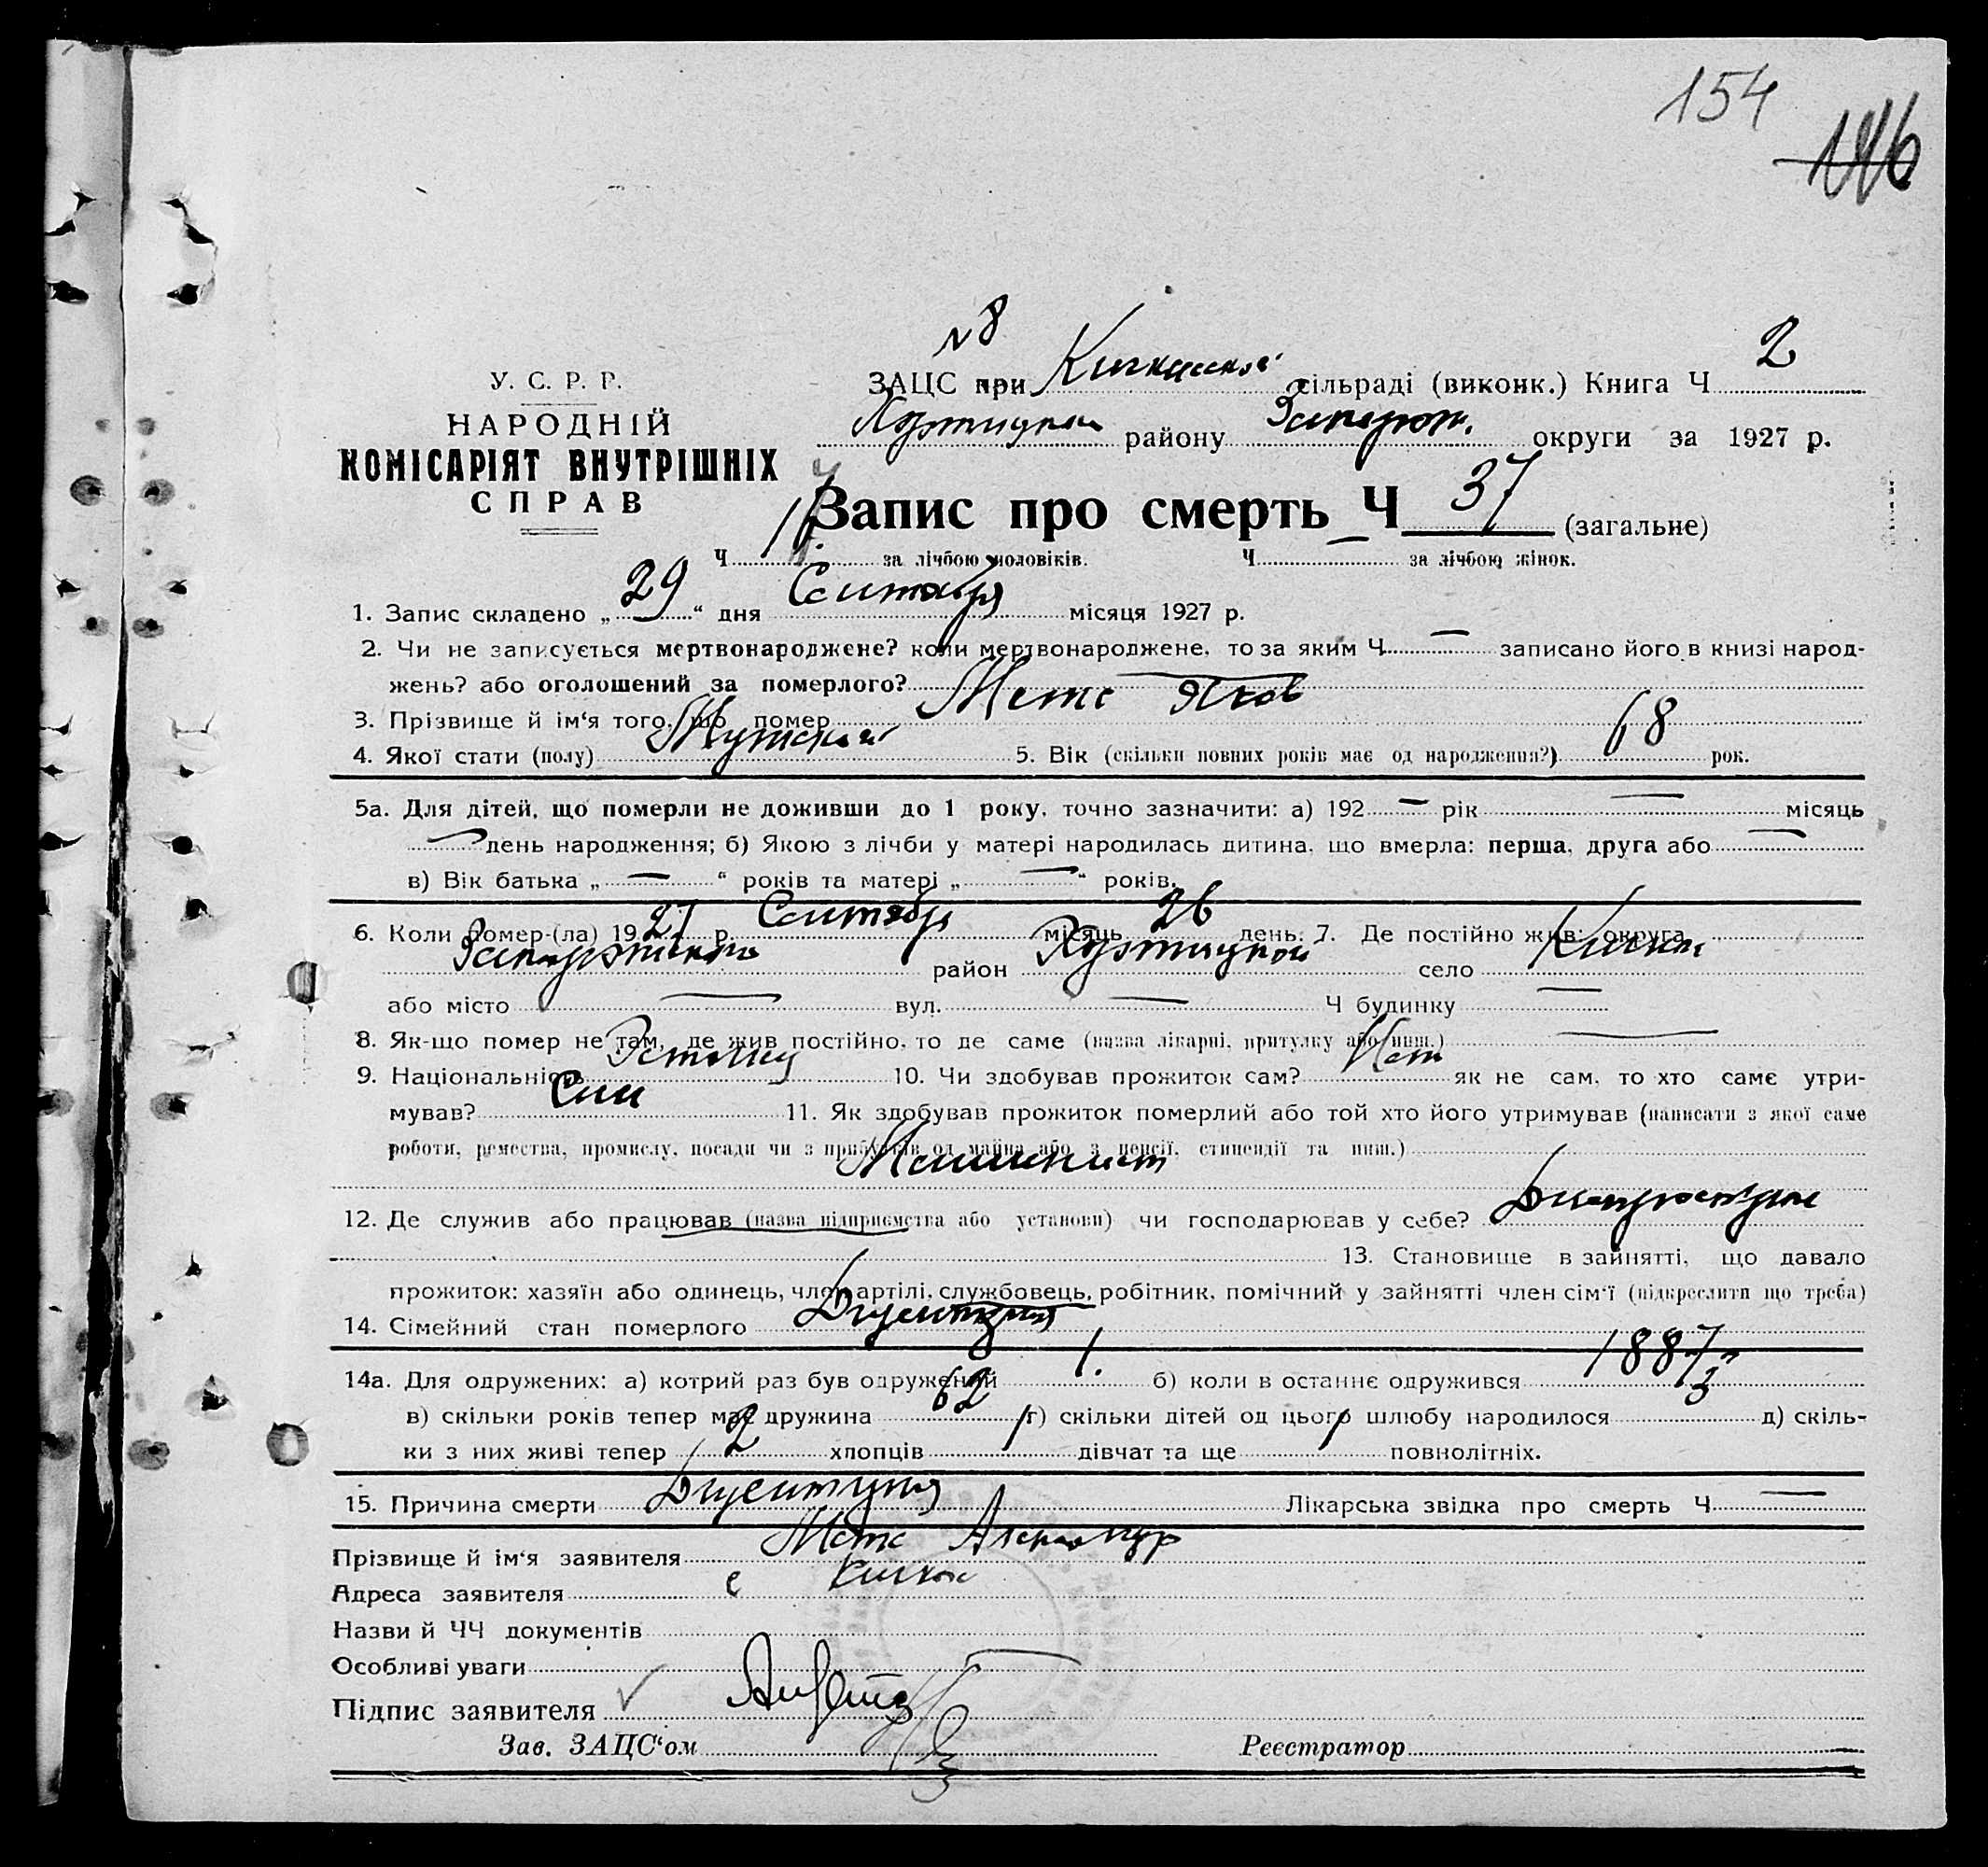 154
146
№ 8
У. С. Р. Р.
НАРОДНІЙ
КОМІСАРІЯТ ВНУТРІШНІХ
СПРАВ
ЗАЦС при Кичкасской сільраді (виконк.) Книга Ч 2
Хортицкой району Запорож. округи за 1927 р.
Запис про смерть Ч 37 (загальне)
Ч 17 за лічбою чоловіків. Ч — за лічбою жінок.
1. Запис складено „ 29 “ дня Сентября місяця 1927 р.
2. Чи не записується мертвонароджене? коли мертвонароджене, то за яким Ч — записано його в книзі народ-
жень? або оголошений за померлого? —
3. Прізвище й ім‘я того, що помер Метс Яков
4. Якої стати (полу) Мужской 5. Вік (скільки повних років має од народження?) 68 рок.
5а. Для дітей, що померли не доживши до 1 року, точно зазначити: а) 192 — рік — місяць
— день народження; б) Якою з лічби у матері народилась дитина, що вмерла: перша, друга або —
в) Вік батька „ — “ років та матері „ — “ років.
6. Коли помер-(ла) 1927 р. Сентябр місяць 26 день. 7. Де постійно жив: округа
Запорожского район Хортицкой село Кичкас
або місто — вул. — Ч будинку —
8. Як-що помер не там, де жив постійно, то де саме (назва лікарні, притулку або инш.) —
9. Національність Эстонец 10. Чи здобував прожиток сам? Нет як не сам, то хто саме утри-
мував? Сын 11. Як здобував прожиток померлий або той хто його утримував (написати з якої саме
роботи, ремества, промислу, посади чи з прибутків од майна або з пенсії, стипендії та инш.)
Машинист
12. Де служив або працював (назва підприємства або установи) чи господарював у себе? Днепрострое
13. Становище в зайнятті, що давало
прожиток: хазяїн або одинець, член артілі, службовець, робітник, помічний у зайнятті член сім‘ї (підкреслити що треба)
14. Сімейний стан померлого
14а. Для одружених: а) котрий раз був одружений 1. б) коли в останнє одружився 1887
в) скільки років тепер має дружина 62 г) скільки дітей од цього шлюбу народилося 3 д) скіль-
ки з них живі тепер 2 хлопців 1 дівчат та ще / повнолітніх.
15. Причина смерти Дизентерия Лікарська звідка про смерть Ч —
Прізвище й ім‘я заявителя Метс Александр
Адреса заявителя с Кичкас
Назви й ЧЧ документів
Особливі уваги —
Підпис заявителя
Зав. ЗАЦС‘ом Реєстратор